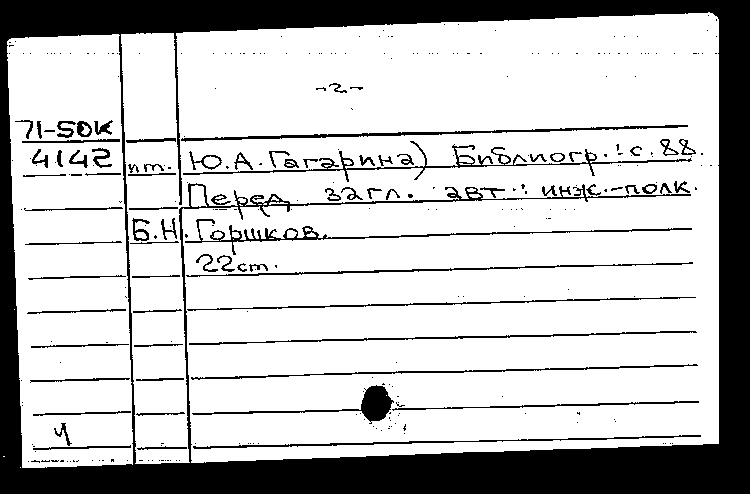 -2-
71-50К
4142 им. Ю.А. Гагарина) Библиогр.: с. 88.
Перед загл. авт.: инж.-полк.
Б.Н. Горшков.
22 cm.